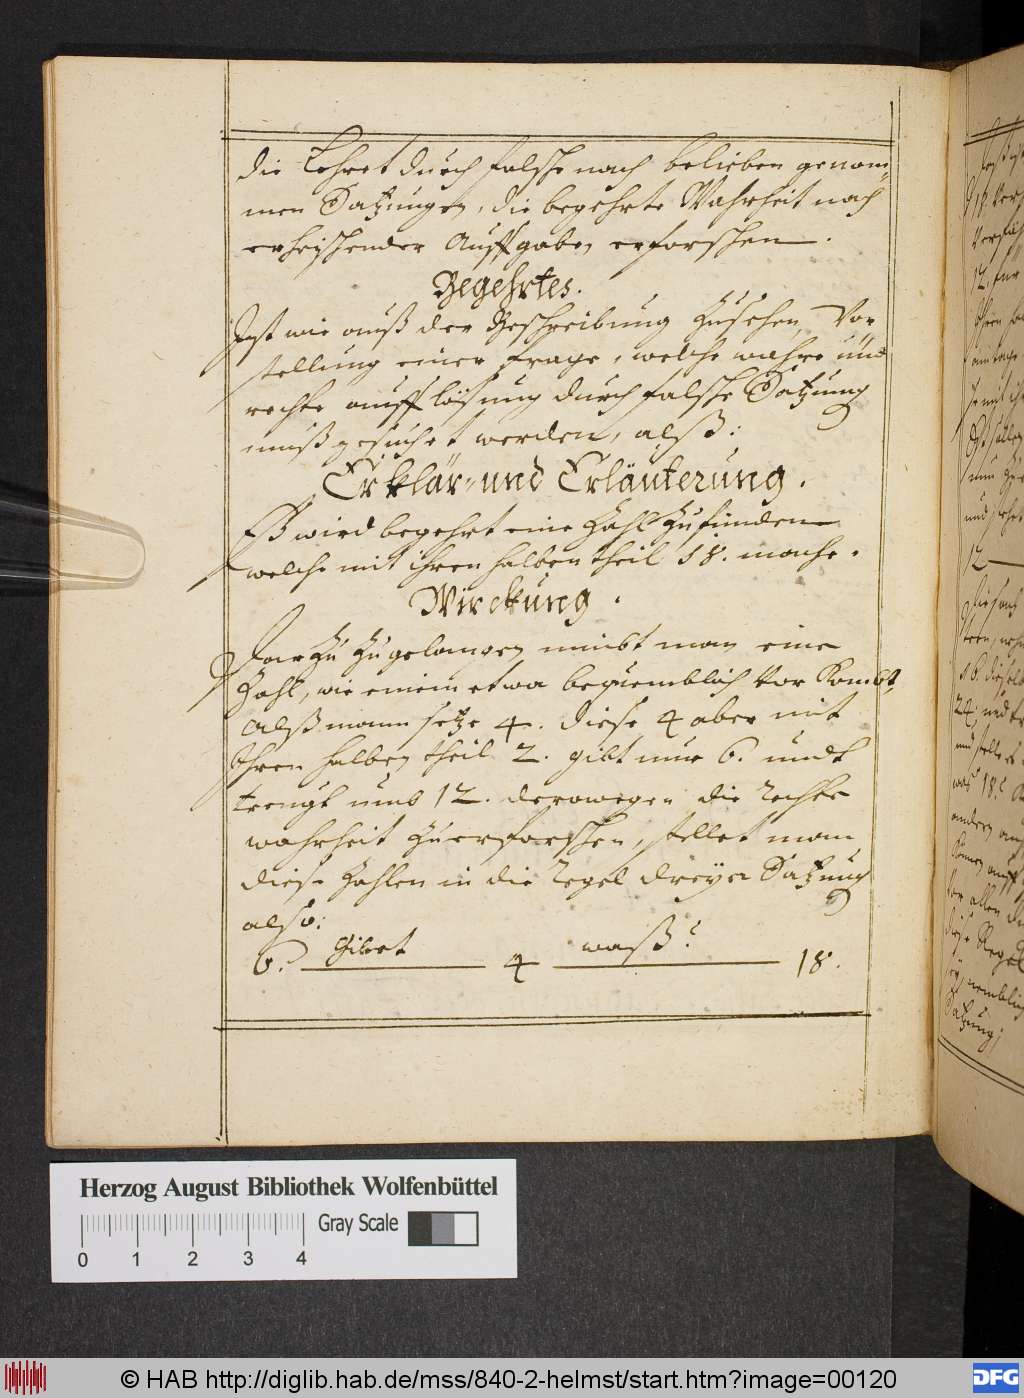 die Lehret durch falsche nach belieben genom-
men Satzungen, die begehrte Wahrheit nach
erheischender Auffgaben erforschen.
Begehrtes.
Ist wie auß der Beschreibung zusehen, Vor-
stellung einer frage, welche wahre und
rechte aufflösung durch falsche Satzung
muß gesuchet werden, alß:
Erklär- und Erläuterung.
Eß wird begehrt eine Zahl zufinden
welche mit ihren halben theil 18. mache.
Wirckung.
Darzu zugelangen nimbt man eine
Zahl, wie einem etwa bequemblich vor kombt,
alß mann setze 4. diese 4 aber mit
Ihren halben theil 2. gibt nur 6. undt
treugt umb 12. derowegen die rechte
wahrheit zuerforschen, stellet man
diese Zahlen in die regel dreyer Satzung
also:
6. Gibet 4 waß? 18.
12
Satzung;
Herzog August Bibliothek Wolfenbüttel
Gray Scale
0 1 2 3 4
© HAB http://diglib.hab.de/mss/840-2-helmst/start.htm?image=00120
DFG